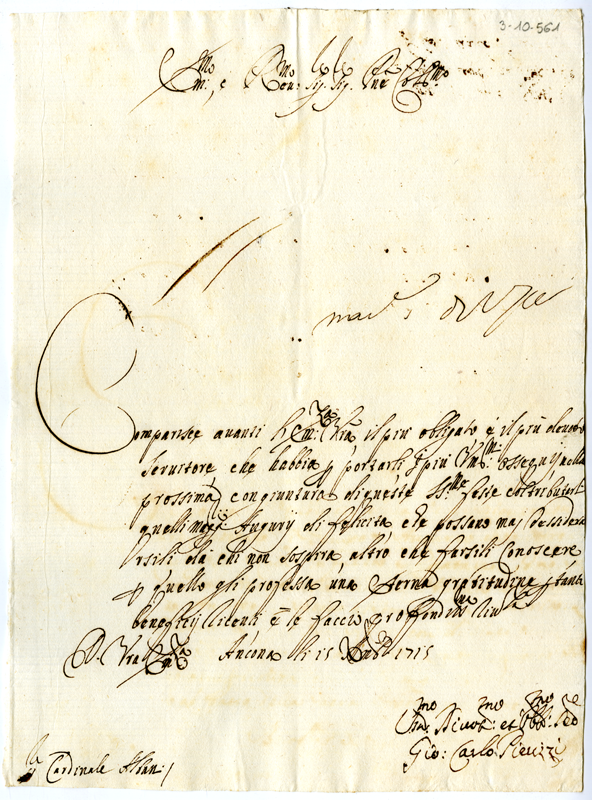 3-10-561
Em:mo, e Reu:mo Sig: Sig: Pne Col:mo
Comparisce auanti l'Em:za Vra il più obligato, e il più deuoto
Seruitore che habbia p portarli i più Vm:mi ossequij nella
prossima congiuntura di queste SS:me feste co tributarli
quelli maggri Augurij di felicita che possano mai desidera
rsili da chi non sospira altro che farsili conoscere
p quello gli professa una eterna gratitudine p tanti
beneficij e le faccio profondma
D. Vra Em:za Ancona li 15 Xmbre 1715
Gio: Carlo
Cardinale Albani